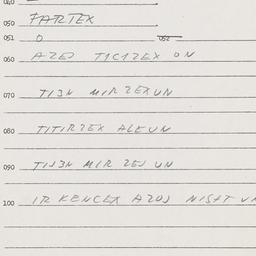 040
050 FARTEX
051 0 052
060 AZEJ TICIZEX ON
070 TIJN MIR ZEXUN
080 TITIRZEX ALEUN
090 TIJJN MIR ZEJ UN
100 IR KENCEX AZOJ NISHT